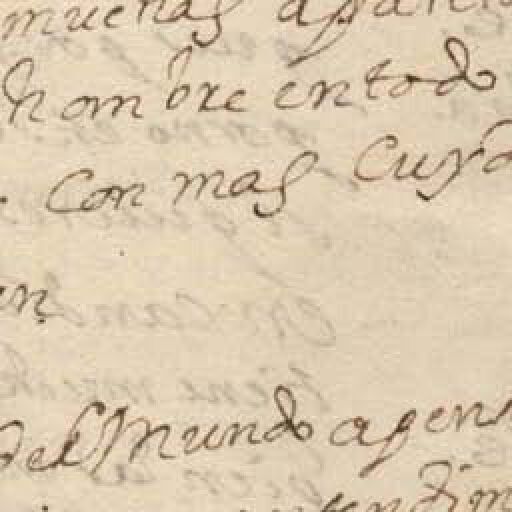 muchas aparien
hombre en todo
. Con mas Cuyd
en
del Mundo apens